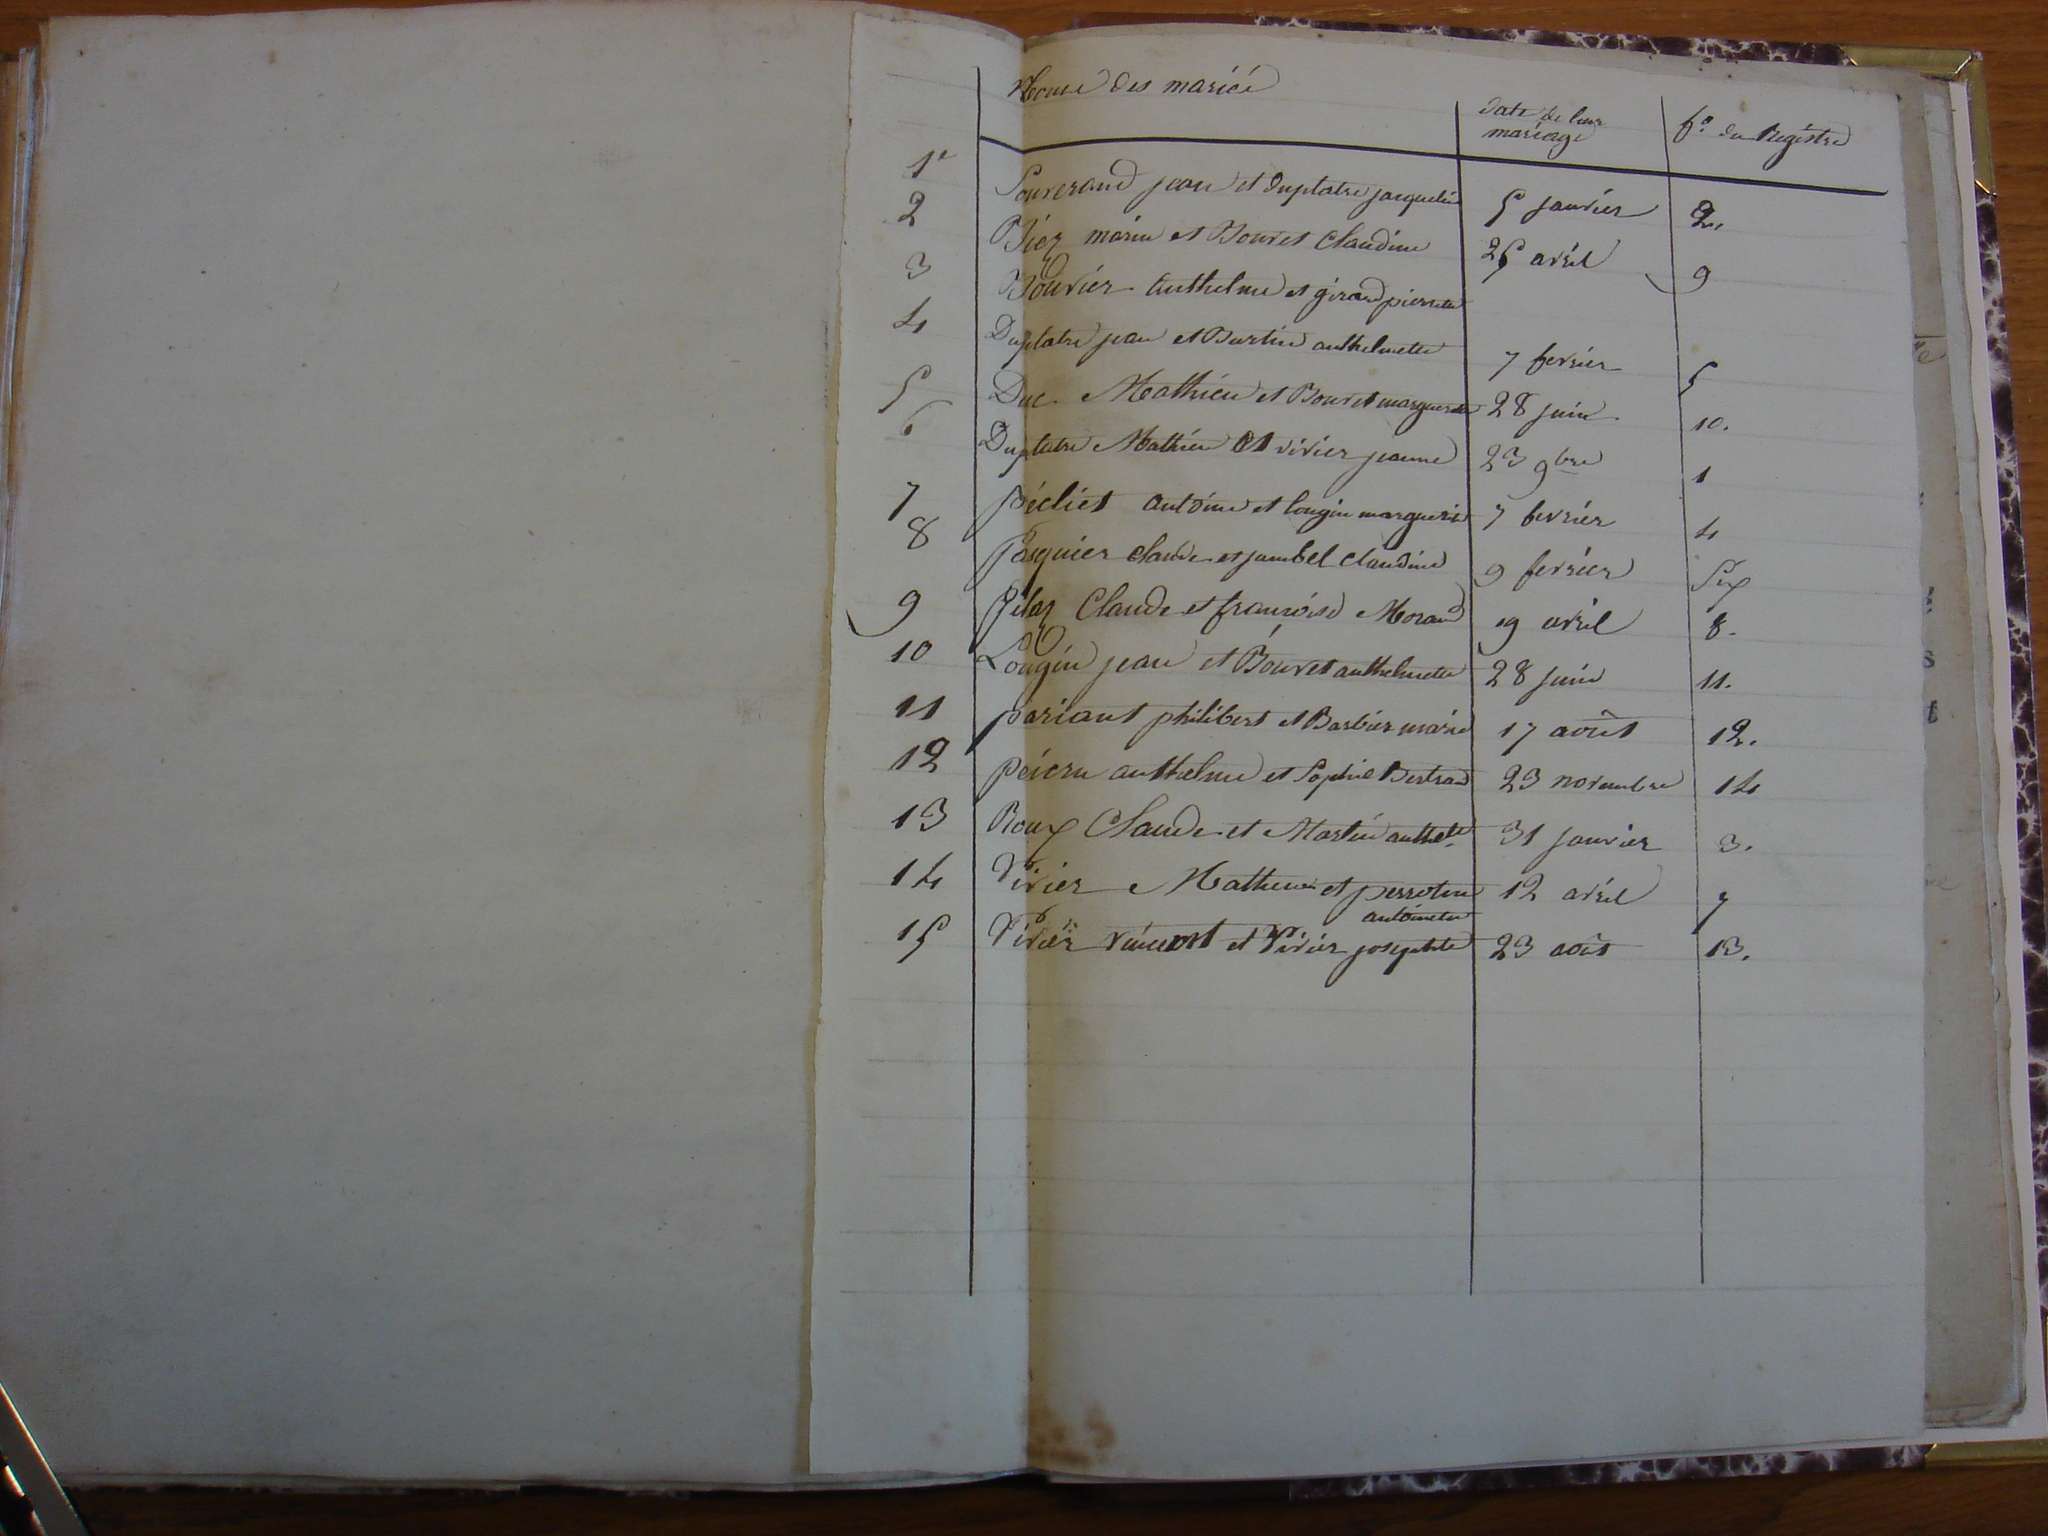 Nom des mariés
date de leur mariage
f.º du Registre
1er Souverand jean et Duplatre jacqueline 5 janvier 2.
2 Biez marin et Bouvet Claudine 25 avril 9
3 Bouvier anthelme et girard pierrette
4 Duplatre jean et Burtin anthelmette 7 fevrier 5
5 Duc Mathieu et Bouvet marguerite 28 juin 10.
6 Duplatre Mathieu et vivier jeanne 23 9bre 1
7 antoine et longin marguerite 7 fevrier 4
8 Pasquier claude et jambel claudine 9 fevrier Six
9 Claude et françoise Morand 19 avril 8.
10 Longin jean et Bouvet anthelmette 28 juin 11.
11 pariant philibert et Barbier marie 17 août 12.
12 anthelme et Sophie Bertrand 23 novembre 14
13 Roux Claude et Martin anthelte 31 janvier 3.
14 Vivier Mathieu et perrotin 12 avril 7
antoinette
15 Vivier vincent et Vivier josephte 23 août 13.